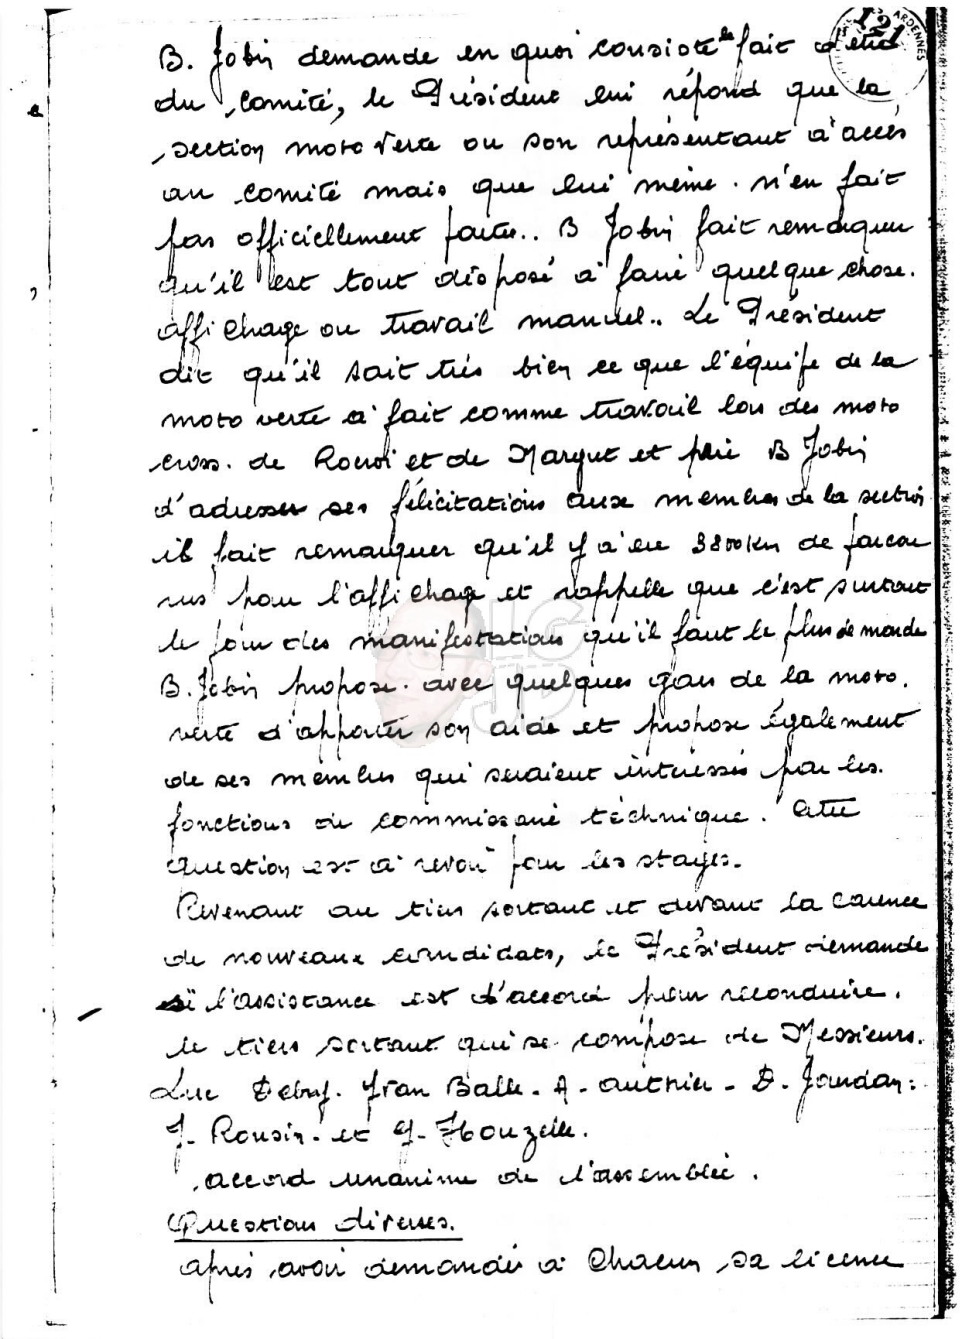 ARDENNES
121
B. Jobin demande en quoi consiste le fait d'etre
du comité, le Président lui répond que la
section moto verte ou son représentant à accès
au comité mais que lui même. n'en fait
pas officiellement partie.. B Jobin fait remarquer
qu'il est tout disposé à faire quelque chose.
affichage ou travail manuel.. Le Président
dit qu'il sait très bien ce que l'équipe de la
moto verte à fait comme travail lors des moto
cross. de Rocroi et de Margut et prie B Jobin
d'adresser ses félicitations aux membres de la section
il fait remarquer qu'il y a eu 3800 km de parcou
rus pour l'affichage et rappelle que c'est surtout
le jour des manifestations qu'il faut le plus de monde
B. Jobin propose. avec quelques gars de la moto.
verte d'apporter son aide et propose également
de ses membres qui seraient intéressés par les.
fonctions de commissaire téchnique. Cette
question est à revoir pour les stages.
Revenant au tiers sortant et devant la carence
de nouveaux candidats, le Président demande
si l'assistance est d'accord pour reconduire.
le tiers sortant qui se compose de Messieurs.
Luc Debuf. Balle. A. authier - D. Jaudan:
J. Rousin. et J. Houzelle.
accord unanime de l'assemblée.
Questions diverses.
après avoir demandés à Chacun sa licence
LG
JD